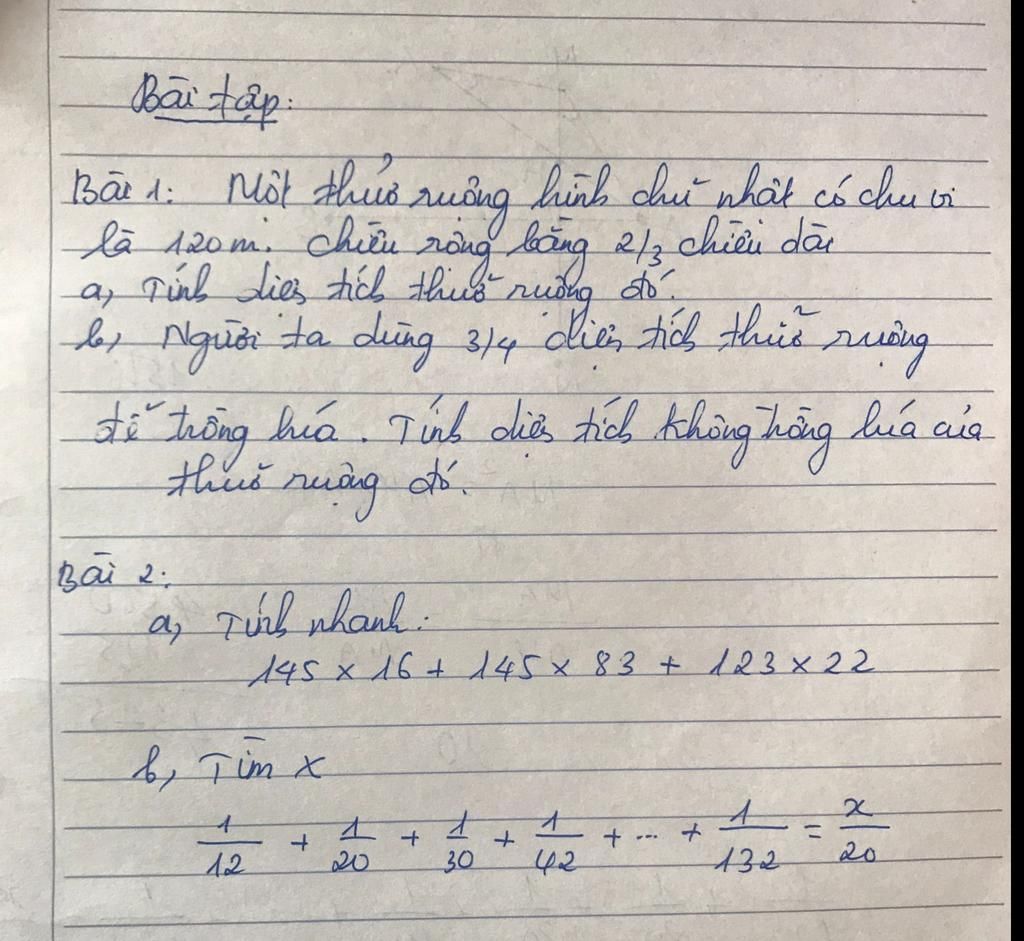 Bài tập:
Bài 1: Một thửa ruộng hình chữ nhật có chu vi
là 120 m. Chiều rộng bằng 2/3 chiều dài
a, Tính diện tích thửa ruộng đó.
b, Người ta dùng 3/4 diện tích thửa ruộng
để trồng lúa. Tính diện tích không trồng lúa của
thửa ruộng đó.
Bài 2:
a, Tính nhanh:
145 x 16 + 145 x 83 + 123 x 22
b, Tìm x
1/12 + 1/20 + 1/30 + 1/42 + ... + 1/132 = x/20